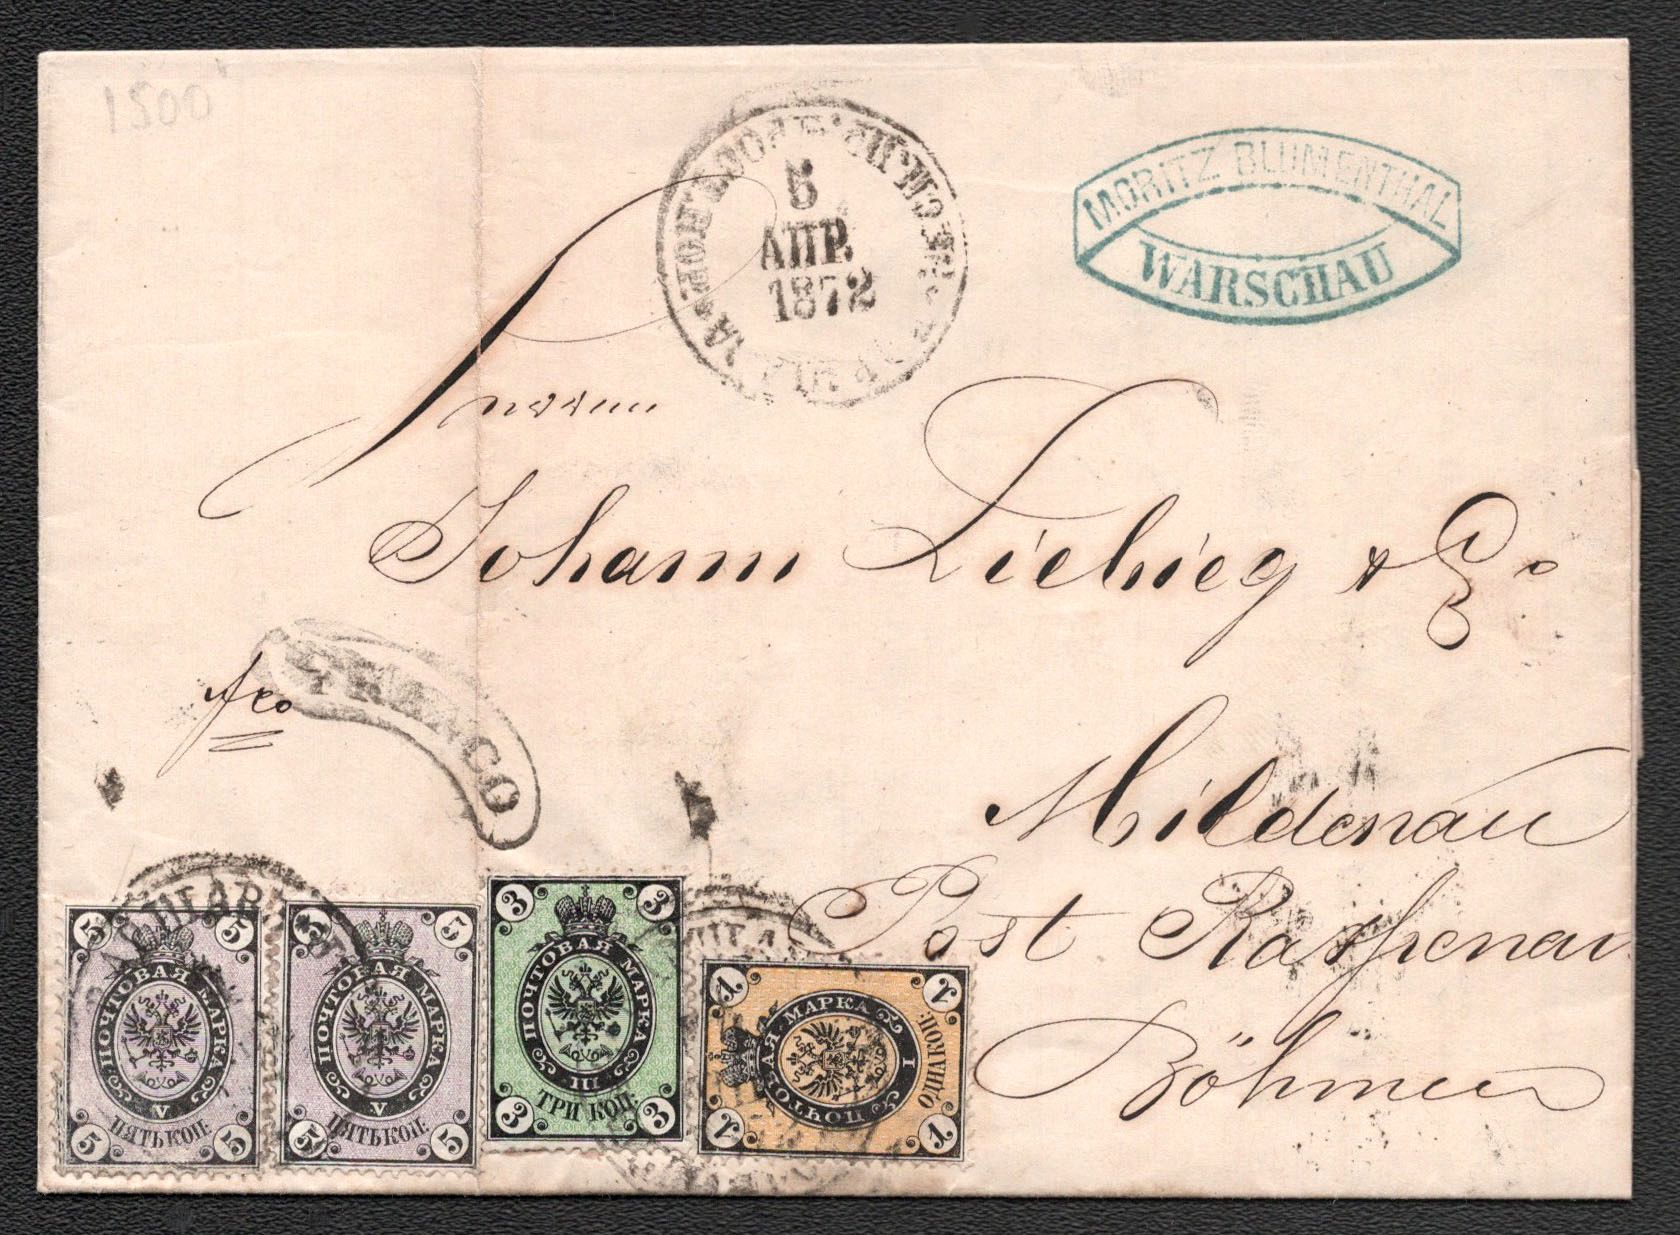 1500
5
АПР.
1872
MORITZ BLUMENTHAL
WARSCHAU
Herren
Johann Liebieg & Co
fco
FRANCO
Mildenau
Post Raspenau
Böhmen
ВАРШАВ
5 5
ПОЧТОВАЯ МАРКА
V
ПЯТЬ КОП.
5 5
5 5
ПОЧТОВАЯ МАРКА
V
ПЯТЬ КОП.
5 5
3 3
ПОЧТОВАЯ МАРКА
III
ТРИ КОП.
3 3
1 1
ПОЧТОВАЯ МАРКА
I
ОДНА КОП.
1 1